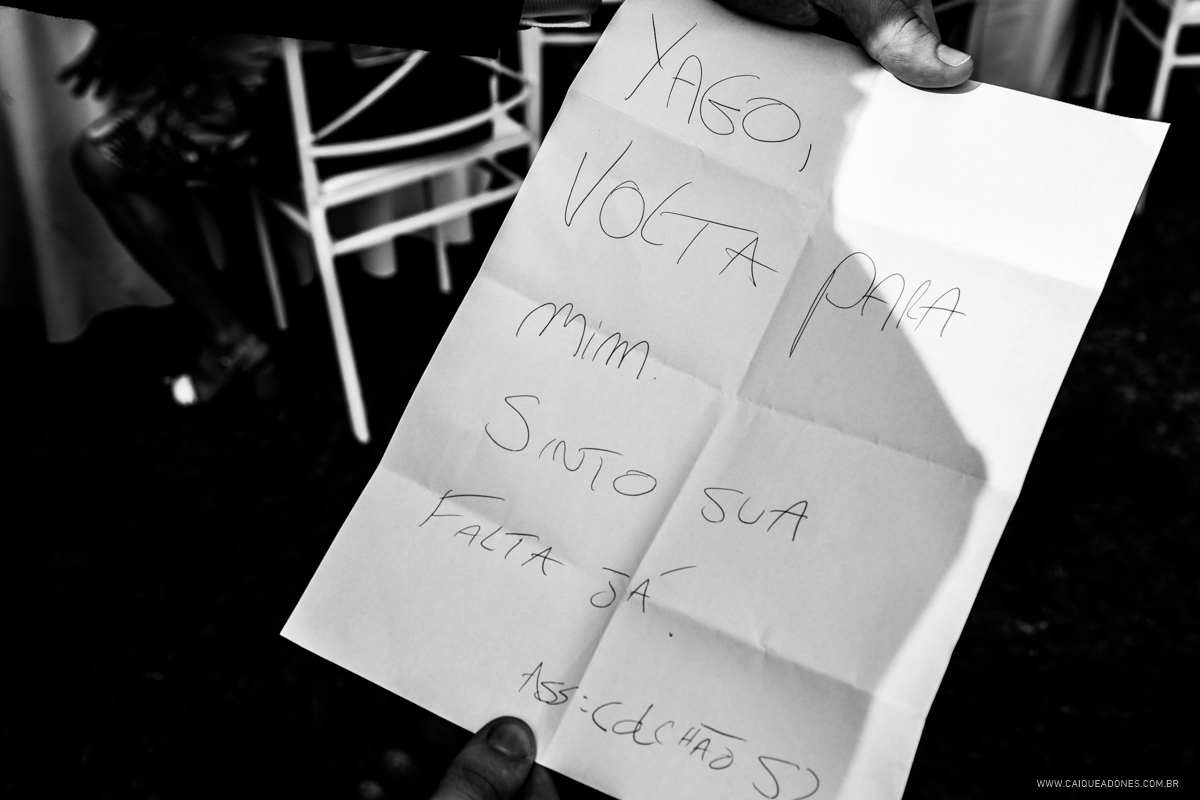 YAGO,
VOLTA PARA
MIM.
SINTO SUA
FALTA JÁ.
ASS: COLCHÃO S2
WWW.CAIQUEADONES.COM.BR